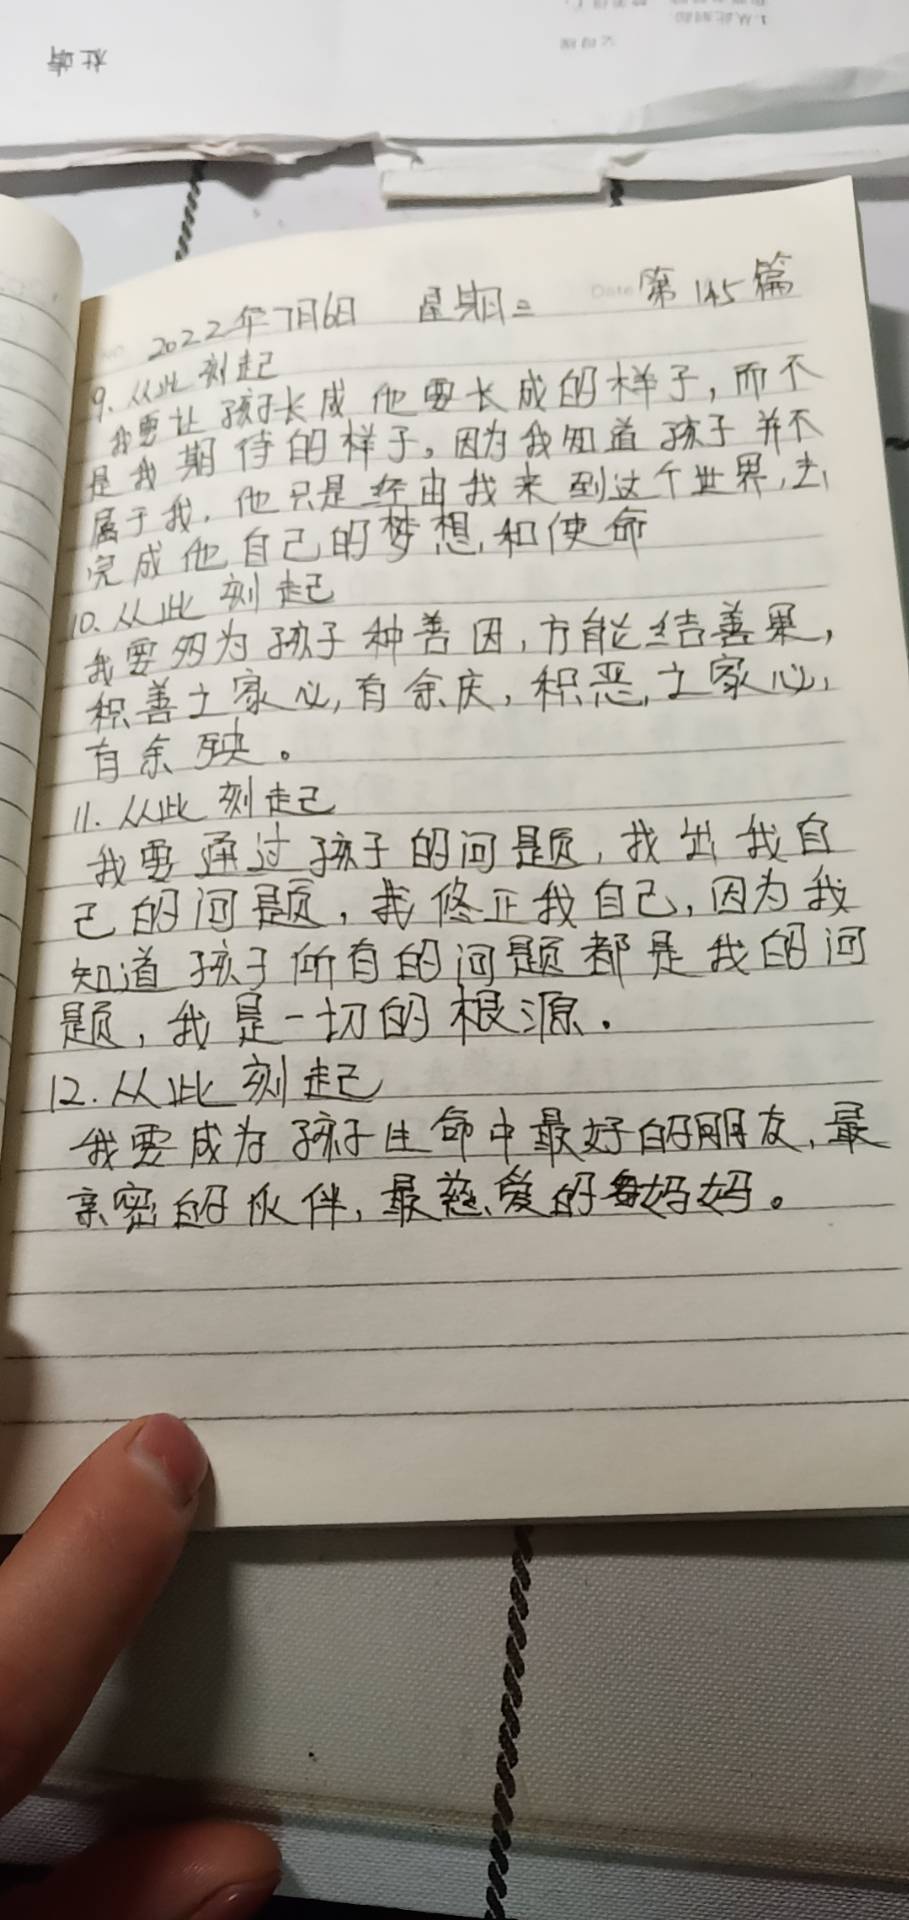 2022年7月6日 星期二 第145篇
9. 从此刻起
我要让孩子长成他要长成的样子,而不
是我期待的样子。因为我知道孩子并不
属于我,他只是经由我来到这个世界,去
完成他自己的梦想和使命
10. 从此刻起
我要多为孩子种善因,方能结善果,
积善之家心,有余庆,积恶之家心,
有余殃。
11. 从此刻起
我要通过孩子的问题,找出我自
己的问题,我修正我自己,因为我
知道孩子所有的问题都是我的问
题,我是一切的根源。
12. 从此刻起
我要成为孩子生命中最好的朋友,最
亲密的伙伴,最慈爱的妈妈。